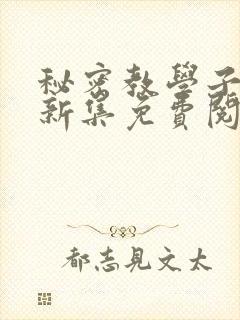 秘密教學子
新集免費閱
都志見文太